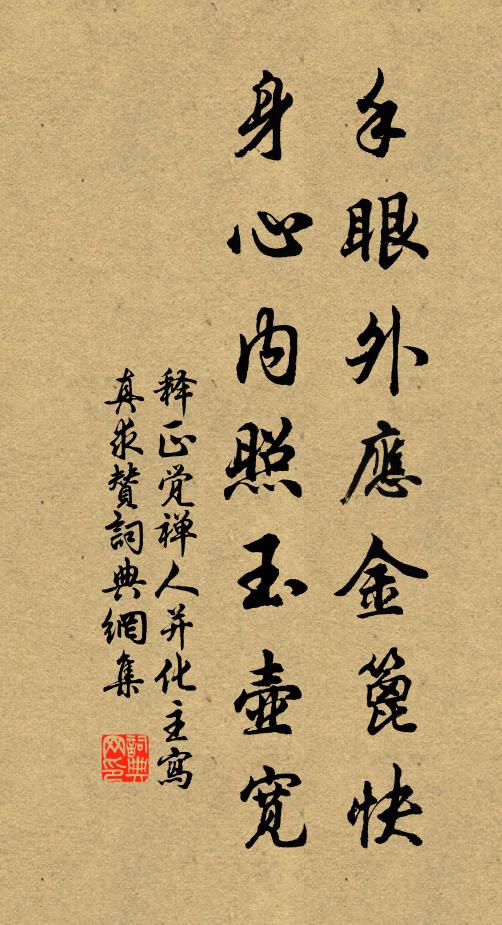 手眼外應金篦快
身心內照玉壺寬
釋正覺禅人并化主寫
真求贊詞典網集
詞典網印